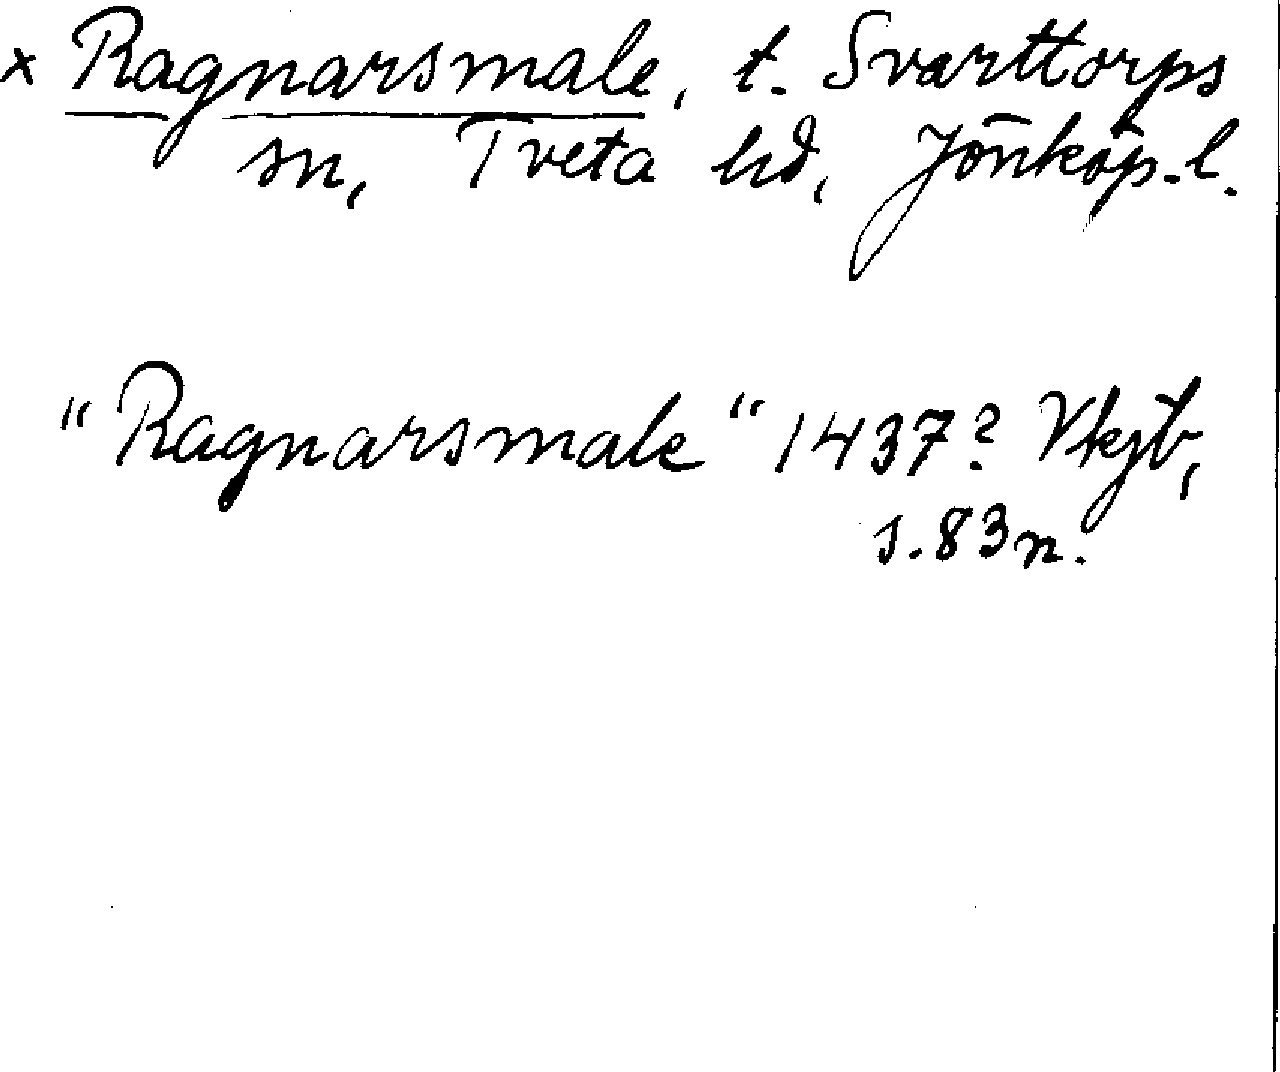 x Ragnarsmale, t. Svarttorps
sn, Tveta hd, Jönköp.l.
"Ragnarsmale" 1437? Vkjb,
s.83n.